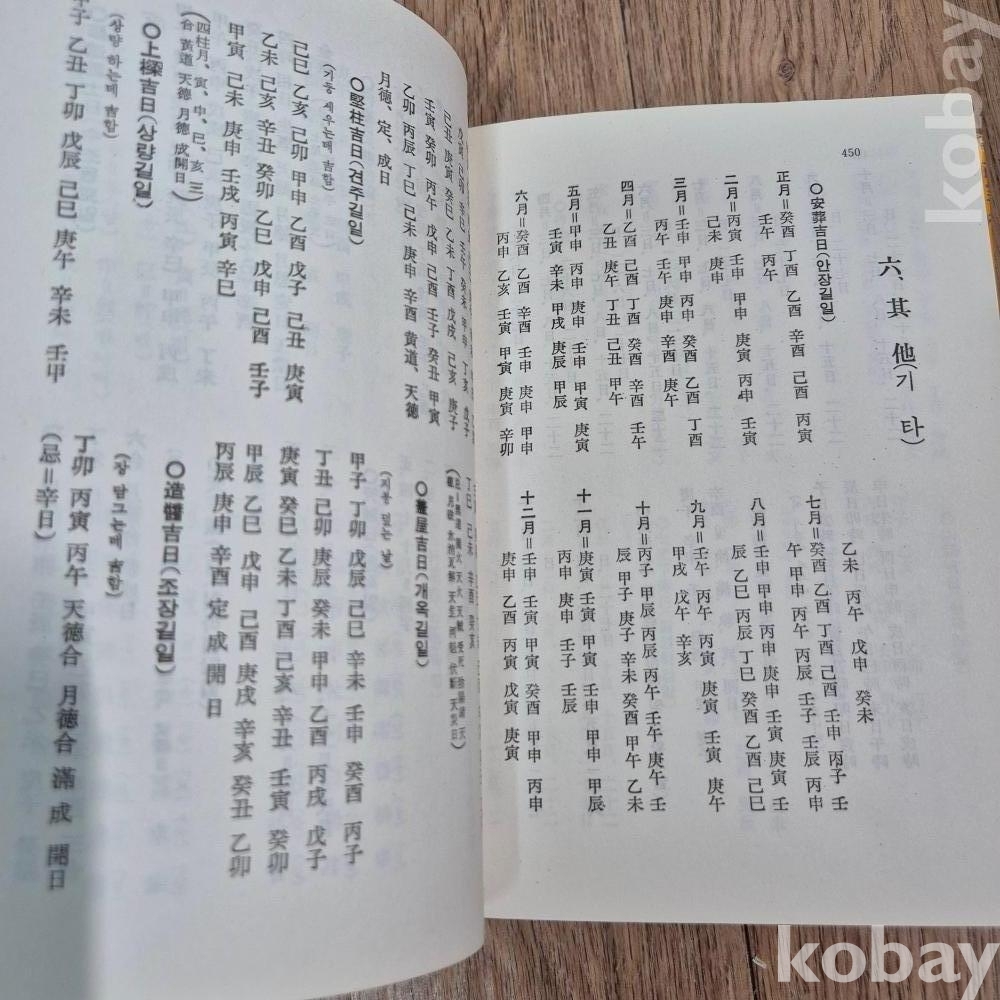 450
六、其他(기 타)
○安葬吉日(안장길일)
正月=癸酉 丁酉 乙酉 辛酉 己酉 丙寅
壬午 丙午
二月=丙寅 壬申 甲申 庚寅 丙申 壬寅
己未 庚申
三月=壬申 丙申 癸酉 乙酉 丁酉
丙午 壬午 庚申 辛酉 庚午
四月=乙酉 己酉 丁酉 癸酉 辛酉 壬午
乙丑 庚午 己丑 甲午
五月=甲申 丙申 庚申 壬申 甲寅 庚寅
壬寅 辛未 甲戌 庚辰 甲辰
六月=癸酉 乙酉 辛酉 壬申 庚申 甲申
丙申 乙亥 壬寅 甲寅 庚寅 辛卯
乙未 丙午 戊申 癸未
七月=癸酉 乙酉 丁酉 己酉 壬申 丙子 壬
午 甲申 丙午 丙申 壬子 壬辰 丙申
八月=壬申 甲申 丙申 庚申 壬寅 庚寅 壬
辰 乙巳 丙辰 丁巳 癸酉 乙酉 己巳
九月=壬午 丙午 丙寅 庚寅 壬寅 庚午
甲戌 戊午 辛亥
十月=丙子 甲辰 丙辰 丙午 壬午 庚午 壬
辰 甲子 庚子 辛未 癸酉 甲午 乙未
十一月=庚寅 壬寅 甲寅 丙寅 壬申 甲申 甲辰
丙申 庚申 壬子 壬辰
十二月=壬申 壬寅 甲寅 癸酉 甲申 丙申
庚申 乙酉 丙寅 戊寅 庚寅
己丑 庚寅 癸巳 乙未 丁酉 戊戌 己亥 庚子
壬寅 癸卯 丙午 戊申 己酉 壬子 癸丑 甲寅
乙卯 丙辰 丁巳 己未 庚申 辛酉 黄道、天德
月德、定、成日
○竪柱吉日(견주길일)
(기둥 세우는때 吉함)
己巳 乙亥 己卯 甲申 乙酉 戊子 己丑 庚寅
乙未 己亥 辛丑 癸卯 乙巳 戊申 己酉 壬子
甲寅 己未 庚申 壬戌 丙寅 辛巳
四柱月、寅、申、巳、亥
合 黄道 天德 月德 成開日
○上樑吉日(상량길일)
(상량 하는데 吉함)
甲子 乙丑 丁卯 戊辰 己巳 庚午 辛未 壬申
丁巳 己未 辛酉 癸亥
○蓋屋吉日(개옥길일)
(지붕 덮는 날)
甲子 丁卯 戊辰 己巳 辛未 壬申 癸酉 丙子
丁丑 己卯 庚辰 癸未 甲申 乙酉 丙戌 戊子
庚寅 癸巳 乙未 丁酉 己亥 辛丑 壬寅 癸卯
甲辰 乙巳 戊申 己酉 庚戌 辛亥 癸丑 乙卯
丙辰 庚申 辛酉 定 成 開 日
○造醬吉日(조장길일)
(장 담그는데 吉함)
丁卯 丙寅 丙午 天德合 月德合 滿 成 開日
(忌=辛日)
kobay
kobay